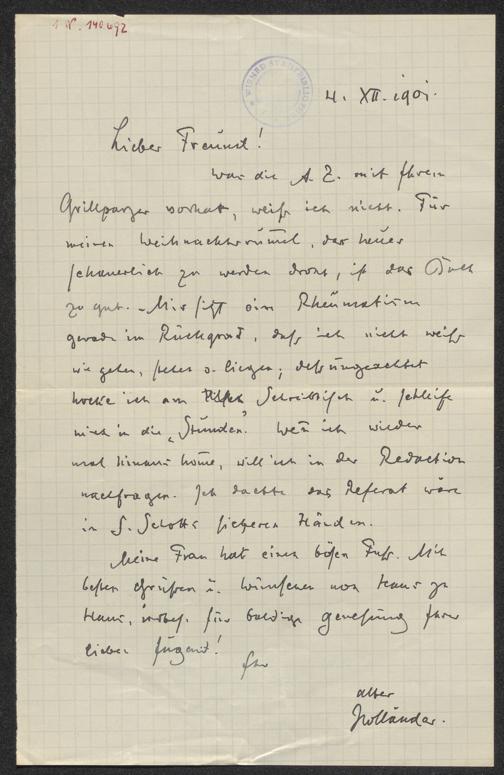 I.N. 140.692
WIENER STADTBIBLIOTHEK
4. XII. 1901.
Lieber Freund!
Was die A. Z. mit Ihrem
Grillparzer vorhat, weiß ich nicht. Für
meinen Weihnachtsrummel, der heuer
schauerlich zu werden droht, ist das Buch
zu gut. – Mir sitzt ein Rheumatism
gerade im Rückgrad, daß ich nicht weiß
wie gehen, sitzen o. liegen; dessungeachtet
hocke ich am Schreibtisch u. schleife
mich in die „Stunden". Wen̄ ich wieder
mal hinaus kom̄e, will ich in der Redaction
nachfragen. Ich dachte das Referat wäre
in S. Schotts sicheren Händen.
Meine Frau hat einen bösen Fuß. Mit
besten Grüßen u. Wünschen von Haus zu
Haus, insbes. für baldige Genesung Ihrer
lieben Jugend!
Ihr
alter
Holländer.